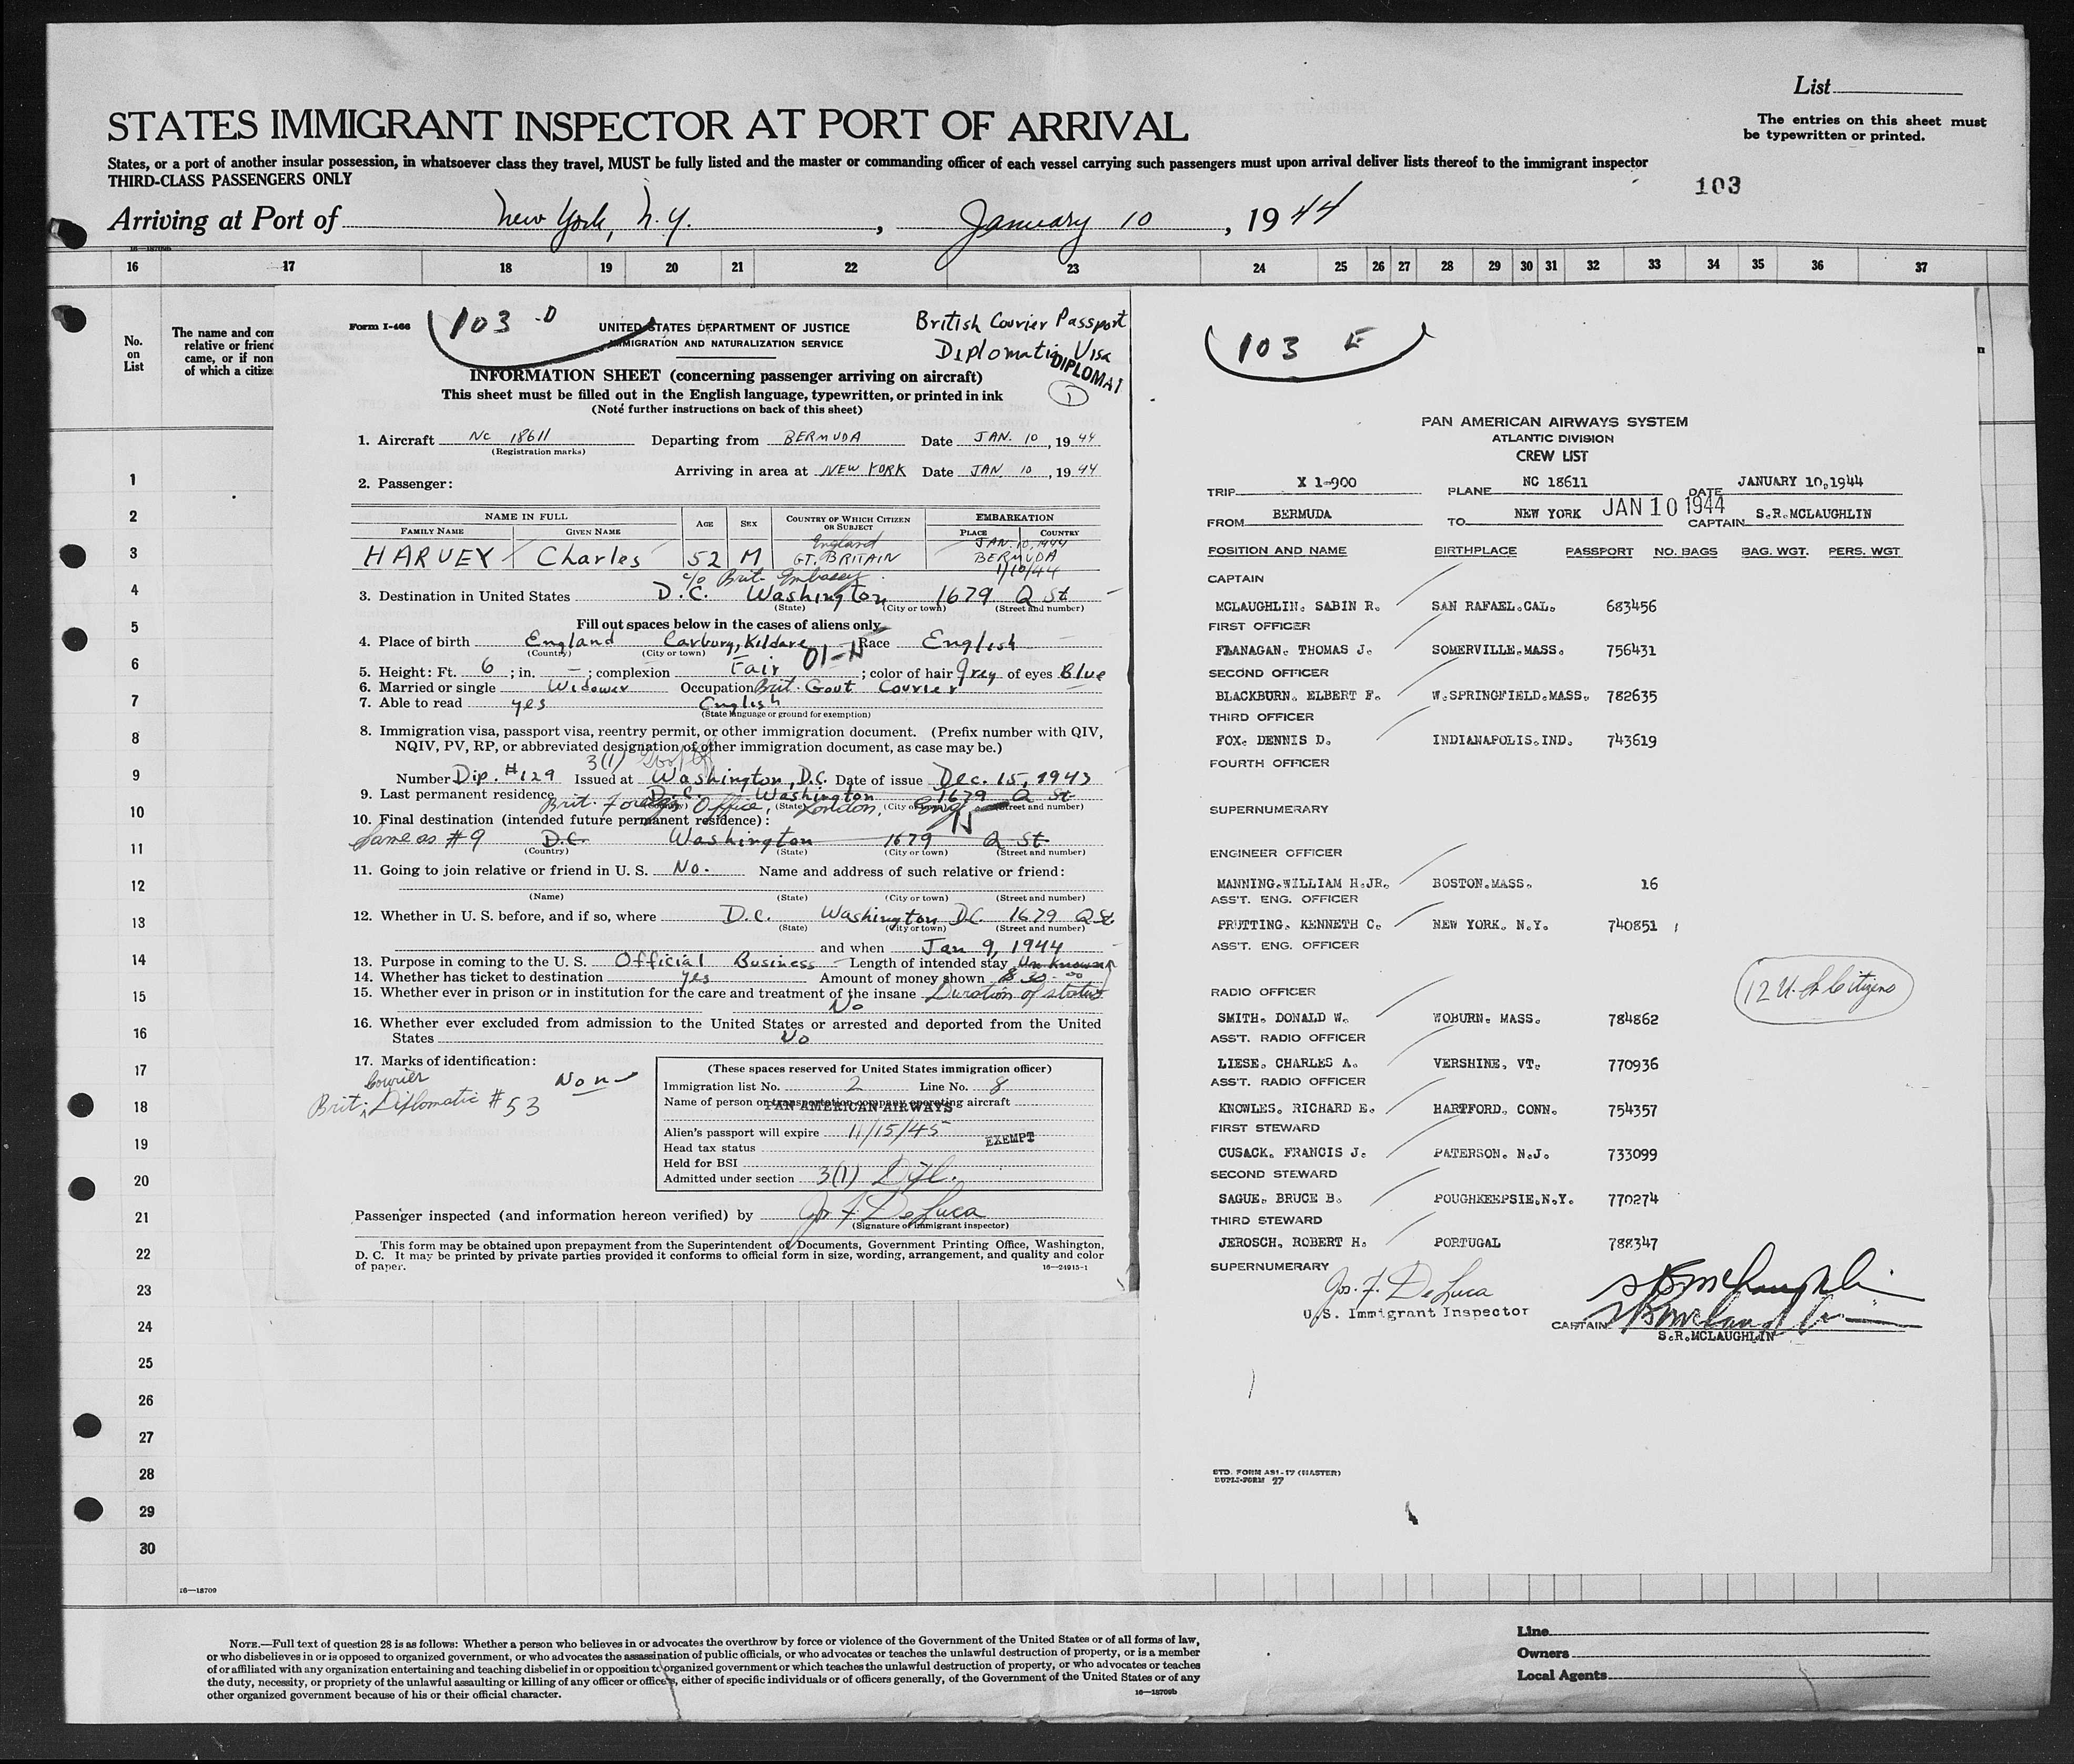 List
STATES IMMIGRANT INSPECTOR AT PORT OF ARRIVAL
The entries on this sheet must
be typewritten or printed.
States, or a port of another insular possession, in whatsoever class they travel, MUST be fully listed and the master or commanding officer of each vessel carrying such passengers must upon arrival deliver lists thereof to the immigrant inspector
THIRD-CLASS PASSENGERS ONLY
103
Arriving at Port of New York, N.Y., January 10, 1944
16 17 18 19 20 21 22 23 24 25 26 27 28 29 30 31 32 33 34 35 36 37
No.
on
List
The name and com
relative or friend
came, or if non
of which a citize
1
2
3
4
5
6
7
8
9
10
11
12
13
14
15
16
17
18
19
20
21
22
23
24
25
26
27
28
29
30
16—18709
Form I-466
103 D
UNITED STATES DEPARTMENT OF JUSTICE
IMMIGRATION AND NATURALIZATION SERVICE
British Courier Passport
Diplomatic Visa
DIPLOMAT
1
INFORMATION SHEET (concerning passenger arriving on aircraft)
This sheet must be filled out in the English language, typewritten, or printed in ink
(Note further instructions on back of this sheet)
1. Aircraft NC 18611 Departing from BERMUDA Date JAN. 10, 1944
(Registration marks)
Arriving in area at NEW YORK Date JAN 10, 1944
2. Passenger:
NAME IN FULL AGE SEX COUNTRY OF WHICH CITIZEN OR SUBJECT EMBARKATION
FAMILY NAME GIVEN NAME PLACE COUNTRY
England JAN. 10, 1944
HARVEY Charles 52 M GT. BRITAIN BERMUDA
1/10/44
c/o Brit. Embassy
3. Destination in United States D.C. Washington 1679 Q St
(State) (City or town) (Street and number)
Fill out spaces below in the cases of aliens only
4. Place of birth England Carbury, Kildare Race English
(Country) (City or town)
01-N
5. Height: Ft. 6; in. –; complexion Fair; color of hair Grey of eyes Blue
6. Married or single Widower Occupation Brit. Govt Courier
7. Able to read yes English
(State language or ground for exemption)
8. Immigration visa, passport visa, reentry permit, or other immigration document. (Prefix number with QIV,
NQIV, PV, RP, or abbreviated designation of other immigration document, as case may be.)
3(1)
Number Dip. #129 Issued at Washington, D.C. Date of issue Dec. 15, 1943
9. Last permanent residence D.C. Washington 1679 Q St
Brit. Foreign Office, London, Eng
(Country) (State) (City or town) (Street and number)
10. Final destination (intended future permanent residence):
Same as #9 D.C. Washington 1679 Q St
(Country) (State) (City or town) (Street and number)
11. Going to join relative or friend in U. S. No. Name and address of such relative or friend:
(Name) (State) (City or town) (Street and number)
12. Whether in U. S. before, and if so, where D.C. Washington DC 1679 Q St
(State) (City or town) (Street and number)
and when Jan 9, 1944
13. Purpose in coming to the U. S. Official Business Length of intended stay Unknown
14. Whether has ticket to destination yes Amount of money shown
15. Whether ever in prison or in institution for the care and treatment of the insane Duration of status
No
16. Whether ever excluded from admission to the United States or arrested and deported from the United
States No
17. Marks of identification:
None
Courier
Brit. Diplomatic #53
(These spaces reserved for United States immigration officer)
Immigration list No. 2 Line No. 8
Name of person or transportation company operating aircraft
PAN AMERICAN AIRWAYS
Alien's passport will expire 11/15/45
Head tax status EXEMPT
Held for BSI
Admitted under section 3(1)
Passenger inspected (and information hereon verified) by Jos. F. DeLuca
(Signature of immigrant inspector)
This form may be obtained upon prepayment from the Superintendent of Documents, Government Printing Office, Washington,
D. C. It may be printed by private parties provided it conforms to official form in size, wording, arrangement, and quality and color
of paper.
16—24915-1
103 E
PAN AMERICAN AIRWAYS SYSTEM
ATLANTIC DIVISION
CREW LIST
TRIP X 1-900 PLANE NC 18611 DATE JANUARY 10,1944
FROM BERMUDA TO NEW YORK JAN 10 1944 CAPTAIN S.R.MCLAUGHLIN
POSITION AND NAME BIRTHPLACE PASSPORT NO. BAGS BAG. WGT. PERS. WGT
CAPTAIN
MCLAUGHLIN, SABIN R. SAN RAFAEL.CAL. 683456
FIRST OFFICER
FLANAGAN, THOMAS J. SOMERVILLE.MASS. 756431
SECOND OFFICER
BLACKBURN, ELBERT F. W.SPRINGFIELD.MASS. 782635
THIRD OFFICER
FOX, DENNIS D. INDIANAPOLIS.IND. 743619
FOURTH OFFICER
SUPERNUMERARY
ENGINEER OFFICER
MANNING.WILLIAM H.JR. BOSTON.MASS. 16
ASS'T. ENG. OFFICER
PRUTTING, KENNETH C. NEW YORK, N.Y. 740851
ASS'T. ENG. OFFICER
RADIO OFFICER
SMITH, DONALD W. WOBURN, MASS. 784862
ASS'T. RADIO OFFICER
LIESE, CHARLES A. VERSHIRE, VT. 770936
ASS'T. RADIO OFFICER
KNOWLES, RICHARD E. HARTFORD, CONN. 754357
FIRST STEWARD
CUSACK, FRANCIS J. PATERSON, N.J. 733099
SECOND STEWARD
SAGUE, BRUCE B. POUGHKEEPSIE.N.Y. 770274
THIRD STEWARD
JEROSCH, ROBERT H. PORTUGAL 788347
SUPERNUMERARY
12 U.S. Citizens
Jos. F. DeLuca
U.S. Immigrant Inspector
S R McLaughlin
CAPTAIN S R McLaughlin
S.R.MCLAUGHLIN
STD. FORM AS1-17 (MASTER)
DUPLI-FORM 27
NOTE.—Full text of question 28 is as follows: Whether a person who believes in or advocates the overthrow by force or violence of the Government of the United States or of all forms of law,
or who disbelieves in or is opposed to organized government, or who advocates the assassination of public officials, or who advocates or teaches the unlawful destruction of property, or is a member
of or affiliated with any organization entertaining and teaching disbelief in or opposition to organized government or which teaches the unlawful destruction of property, or who advocates or teaches
the duty, necessity, or propriety of the unlawful assaulting or killing of any officer or officers, either of specific individuals or of officers generally, of the Government of the United States or of any
other organized government because of his or their official character.
16—18709b
Line
Owners
Local Agents